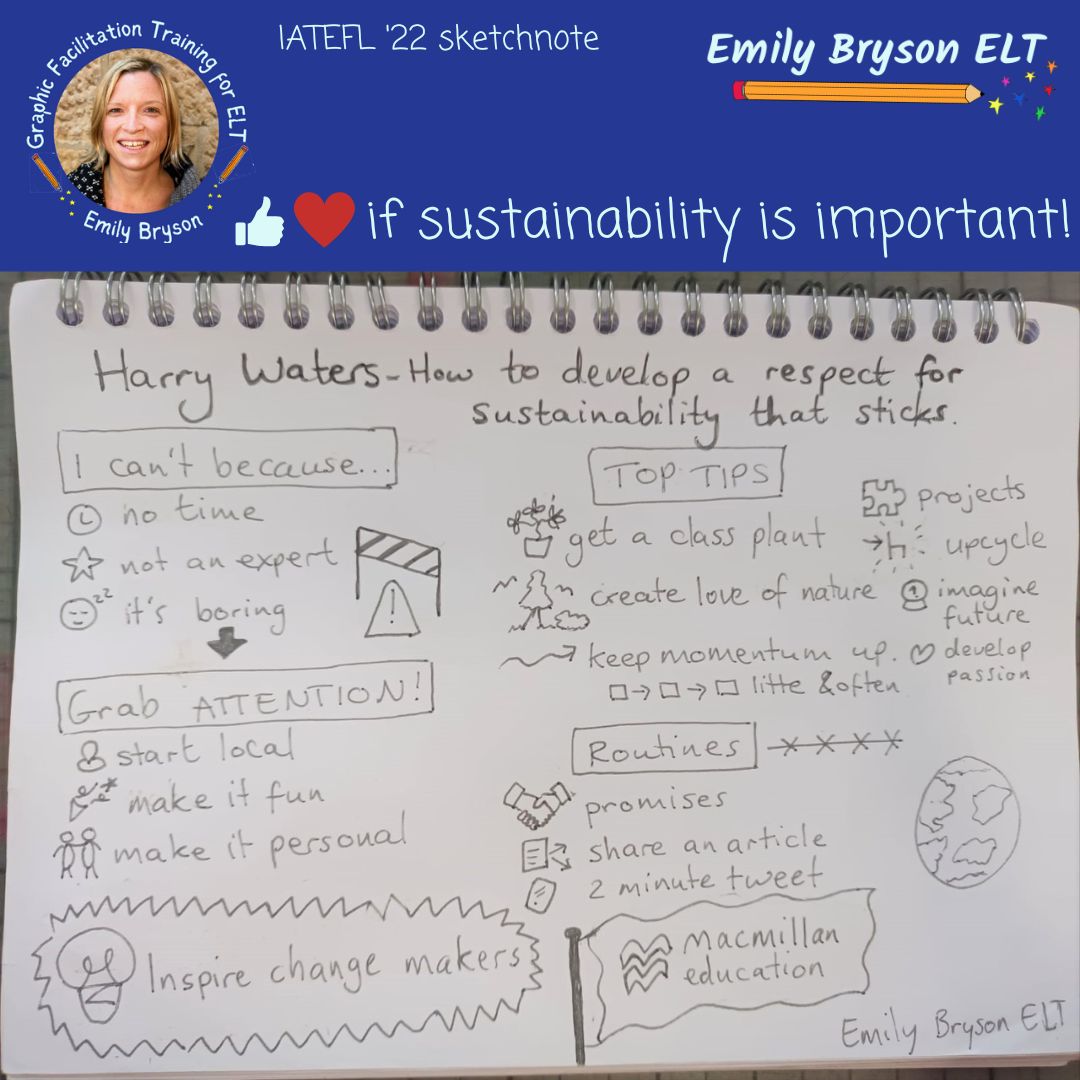 Graphic Facilitation Training for ELT
Emily Bryson
IATEFL '22 sketchnote
Emily Bryson ELT
if sustainability is important!
Harry Waters - How to develop a respect for
sustainability that sticks.
I can't because...
no time
not an expert
zz
it's boring
!
Grab ATTENTION!
start local
make it fun
make it personal
Inspire change makers
TOP TIPS
get a class plant
create love of nature
keep momentum up.
litte & often
projects
upcycle
imagine
future
develop
passion
Routines
promises
share an article
2 minute tweet
macmillan
education
Emily Bryson ELT